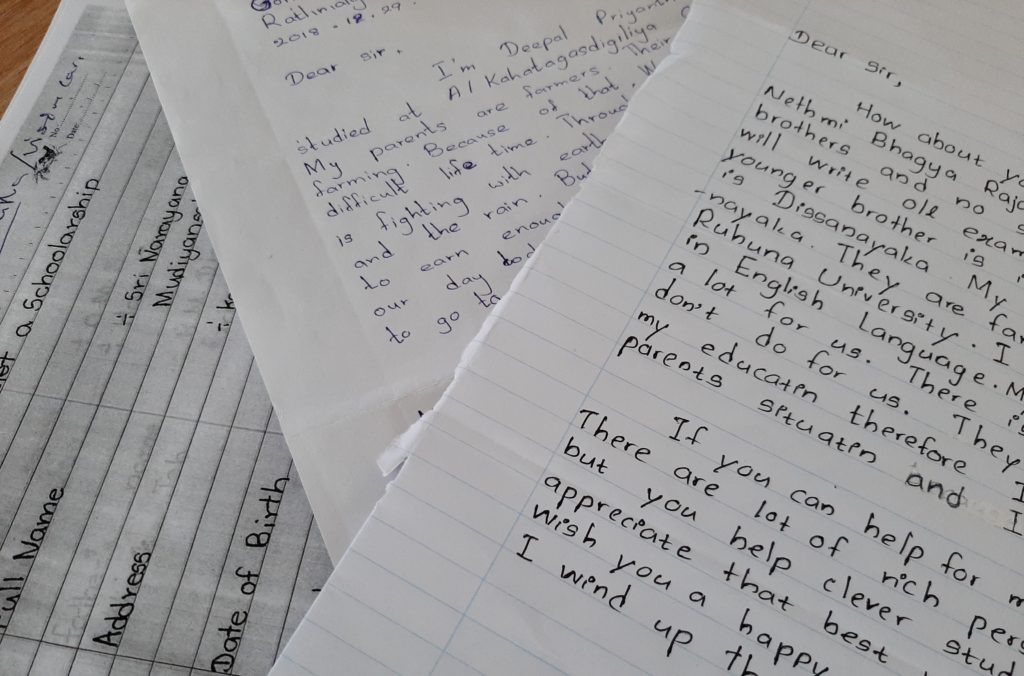 Rathmal
2018.12.29.
Dear sir.
I'm Deepal
studied at A/Kahatagasdigiliya
My parents are farmers. Their
farming. Because of that
difficult life time. Throu
is fighting with earth
and the rain. But
to earn enoug
our day tod
to go to
Dear sir,
How about yo
Nethmi Bhagya Raja
brothers and no s
will write ole exam
younger brother is
is Dissanayaka. My
nayaka. They are far
Ruhuna University. I
in English language. M
a lot for us. There is
don't do for us. They
my educatin therefore I
parents situatin and I
If you can help for m
There are lot of rich pers
but you help clever stud
appreciate that best
wish you a happy
I wind up th
a Schoolarship
Full Name ÷ Sri Narayana
Mudiyans
Address ÷
Date of Birth